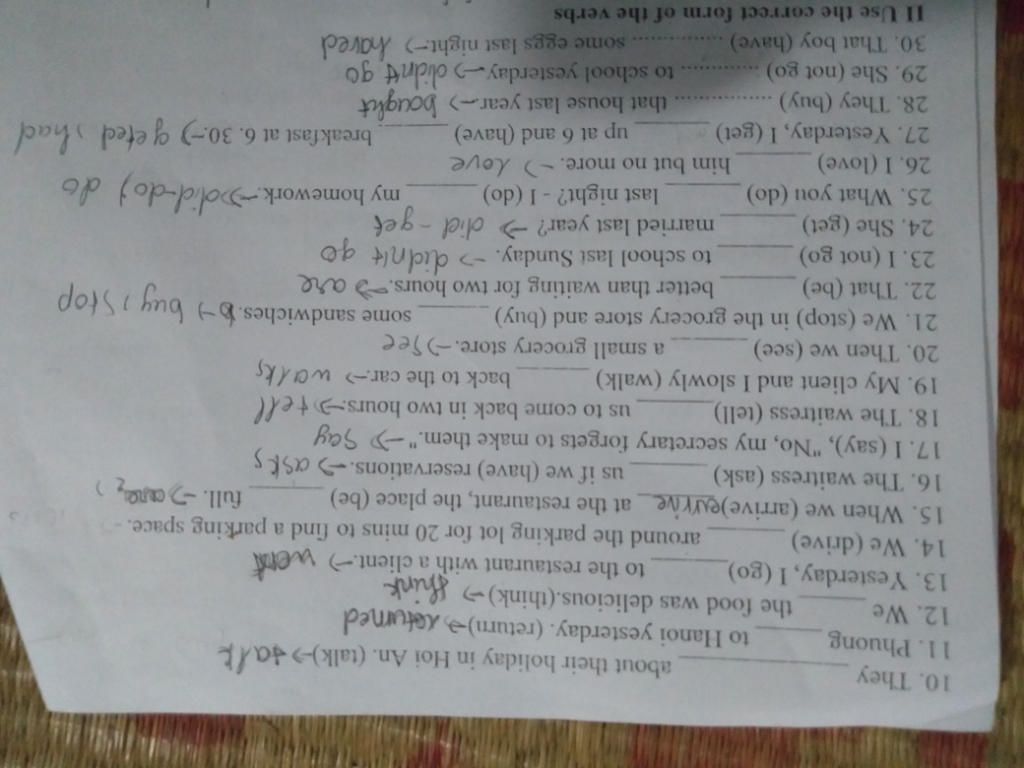 10. They ______________ about their holiday in Hoi An. (talk) → talk
11. Phuong ______ to Hanoi yesterday. (return) → returned
12. We ______ the food was delicious. (think) → think
13. Yesterday, I (go) ______ to the restaurant with a client. → went
14. We (drive) ______ around the parking lot for 20 mins to find a parking space. -
15. When we (arrive) arrive at the restaurant, the place (be) ______ full. → are,
16. The waitress (ask) ______ us if we (have) reservations. → asks
17. I (say), "No, my secretary forgets to make them." → Say
18. The waitress (tell) ______ us to come back in two hours. → tell
19. My client and I slowly (walk) ______ back to the car. → walks
20. Then we (see) ______ a small grocery store. → See
21. We (stop) in the grocery store and (buy) ______ some sandwiches. → buy, Stop
22. That (be) ______ better than waiting for two hours. → are
23. I (not go) ______ to school last Sunday. → didn't go
24. She (get) ______ married last year? → did - get
25. What you (do) ______ last night? - I (do) ______ my homework. → did-do, do
26. I (love) ______ him but no more. → Love
27. Yesterday, I (get) ______ up at 6 and (have) ______ breakfast at 6. 30. → geted, had
28. They (buy) ............... that house last year. → bought
29. She (not go) ............ to school yesterday. → didn't go
30. That boy (have) .............. some eggs last night → haved
II Use the correct form of the verbs